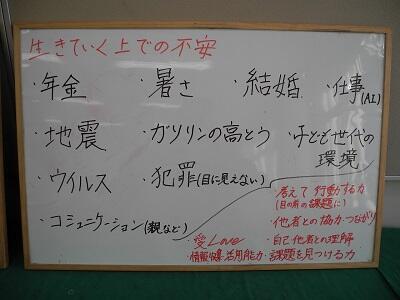 生きていく上での不安
・年金 ・暑さ ・結婚 ・仕事(AI)
・地震 ・ガソリンの高とう ・子ども世代の
環境
・ウイルス ・犯罪(目に見えない)
・コミュニケーション(親など)
・考えて行動する力
(目の前の課題に)
・他者との協力・つながり
・愛Love ・自己・他者との理解
・情報収集・活用能力・課題を見つける力